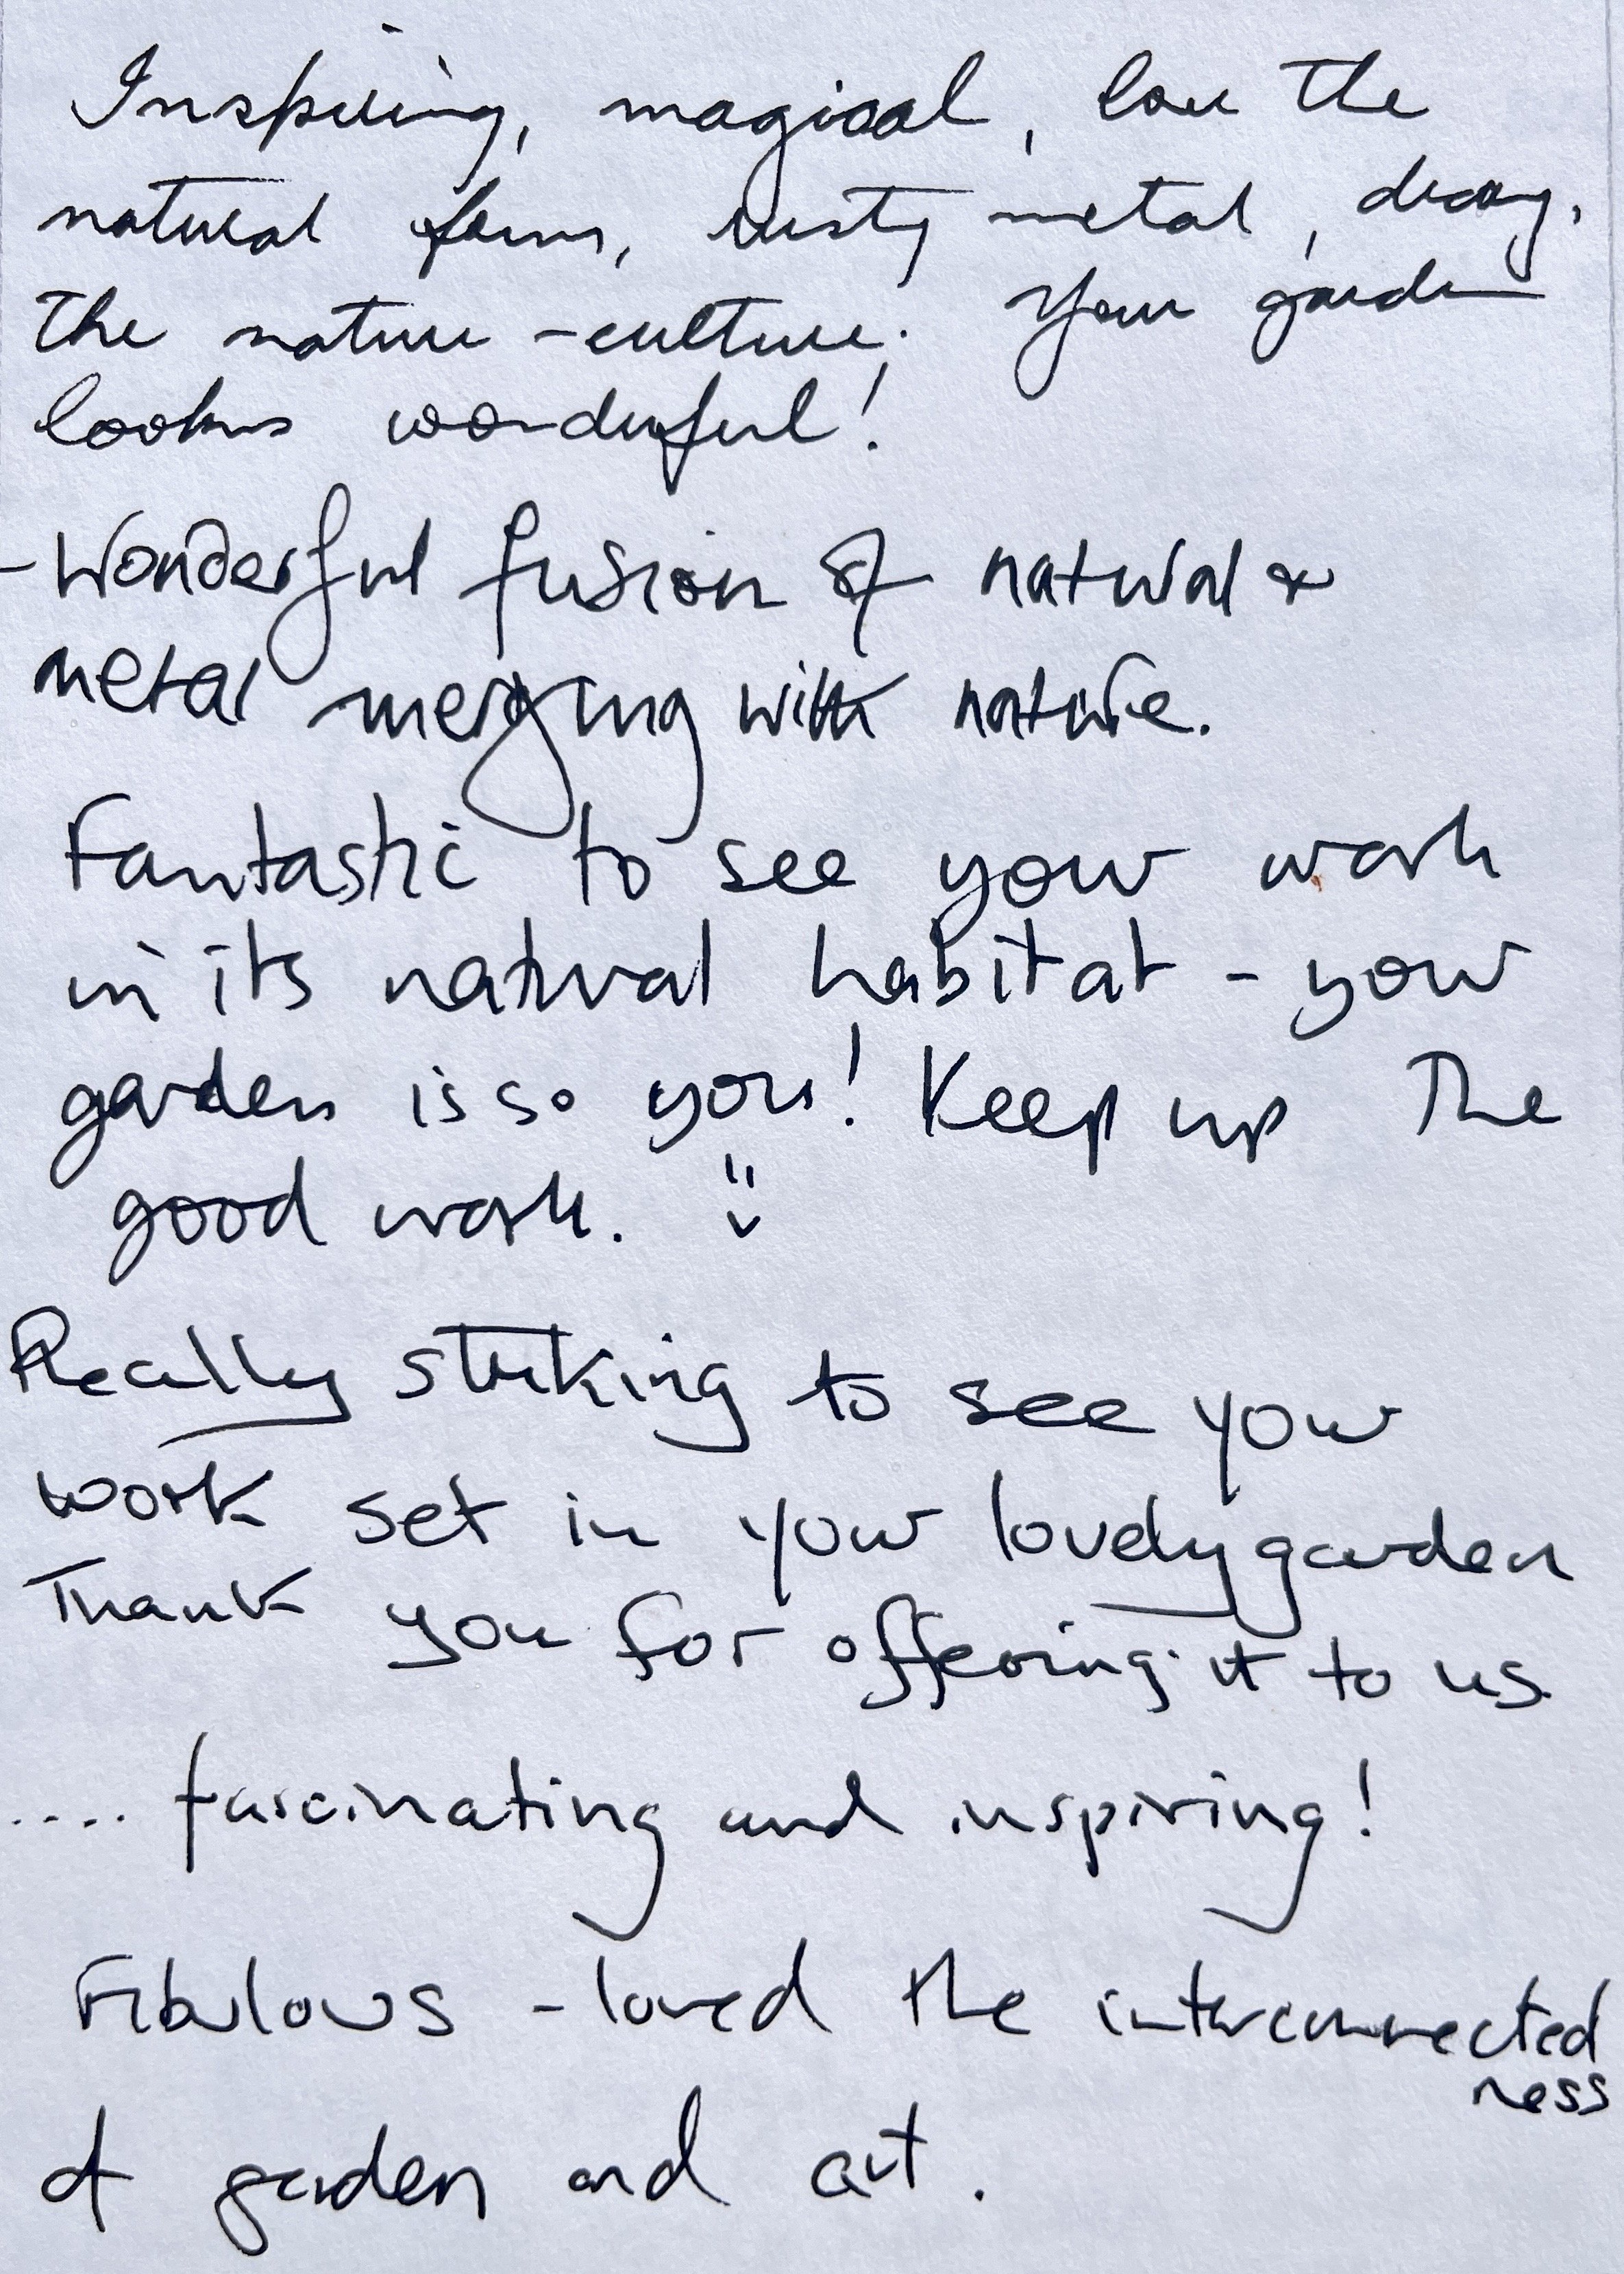 Inspiring, magical, love the
natural forms, rusty metal, decay,
the nature-culture. Your garden
looks wonderful!
- Wonderful fusion of natural &
metal merging with nature.
Fantastic to see your work
in its natural habitat - your
garden is so you! Keep up the
good work.
Really striking to see your
work set in your lovely garden
Thank you for offering it to us
.... fascinating and inspiring!
Fabulous - loved the interconnected
ness
of garden and art.